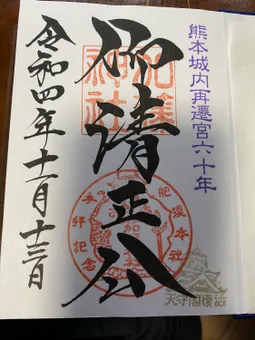 熊本城内再遷宮六十年
仰清正公
加藤神社
肥後本社
参拝記念
令和四年十一月十三日
天守閣復